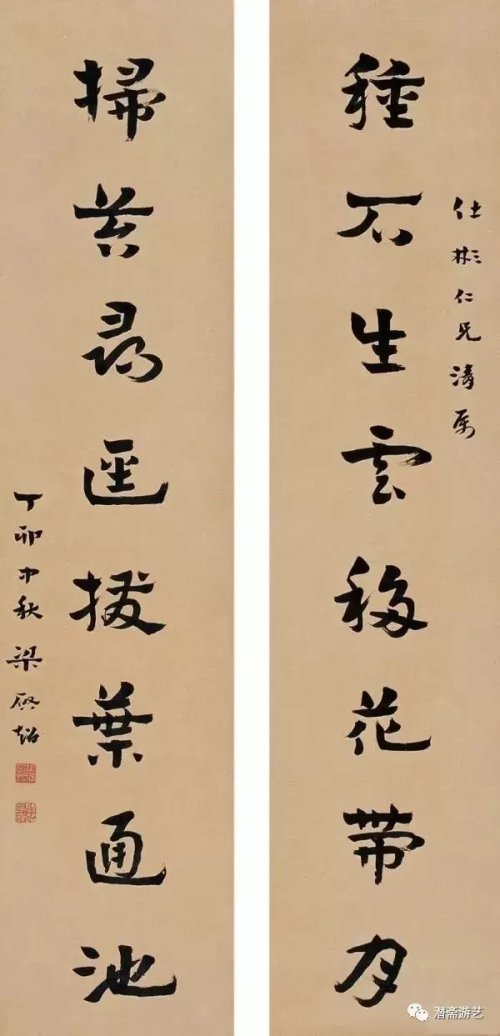 仕彬仁兄清属
種石生雲移花帶月
掃苔尋逕撥葉通池
丁卯中秋梁啟超
潜斋游艺